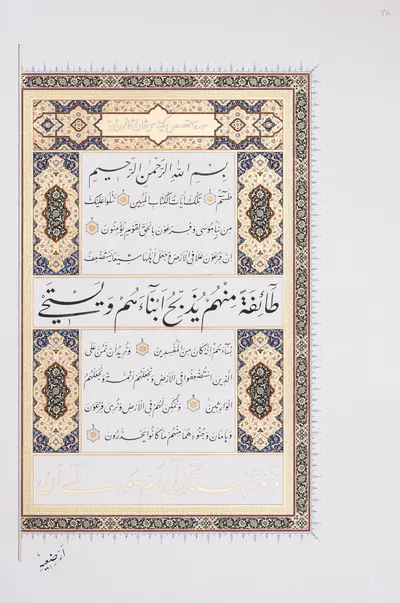 سورة القصص مكية وهي ثمان و ثمانون آية
بِسْمِ اللهِ الرَّحْمٰنِ الرَّحِيمِ
طسٓمٓ تِلْكَ آيَاتُ الْكِتَابِ الْمُبِينِ نَتْلُوا عَلَيْكَ
مِنْ نَبَإِ مُوسٰى وَفِرْعَوْنَ بِالْحَقِّ لِقَوْمٍ يُؤْمِنُونَ
اِنَّ فِرْعَوْنَ عَلَا فِي الْاَرْضِ وَجَعَلَ اَهْلَهَا شِيَعًا يَسْتَضْعِفُ
طَآئِفَةً مِنْهُمْ يُذَبِّحُ اَبْنَآءَهُمْ وَيَسْتَحْيٖ
نِسَآءَهُمْ اِنَّهُ كَانَ مِنَ الْمُفْسِدِينَ وَنُرِيدُ اَنْ نَمُنَّ عَلَى
الَّذِينَ اسْتُضْعِفُوا فِي الْاَرْضِ وَنَجْعَلَهُمْ اَئِمَّةً وَنَجْعَلَهُمُ
الْوَارِثِينَ وَنُمَكِّنَ لَهُمْ فِي الْاَرْضِ وَنُرِيَ فِرْعَوْنَ
وَهَامَانَ وَجُنُودَهُمَا مِنْهُمْ مَا كَانُوا يَحْذَرُونَ
وَاَوْحَيْنَا اِلٰى اُمِّ مُوسٰى اَنْ
اَرْضِعِيهِ